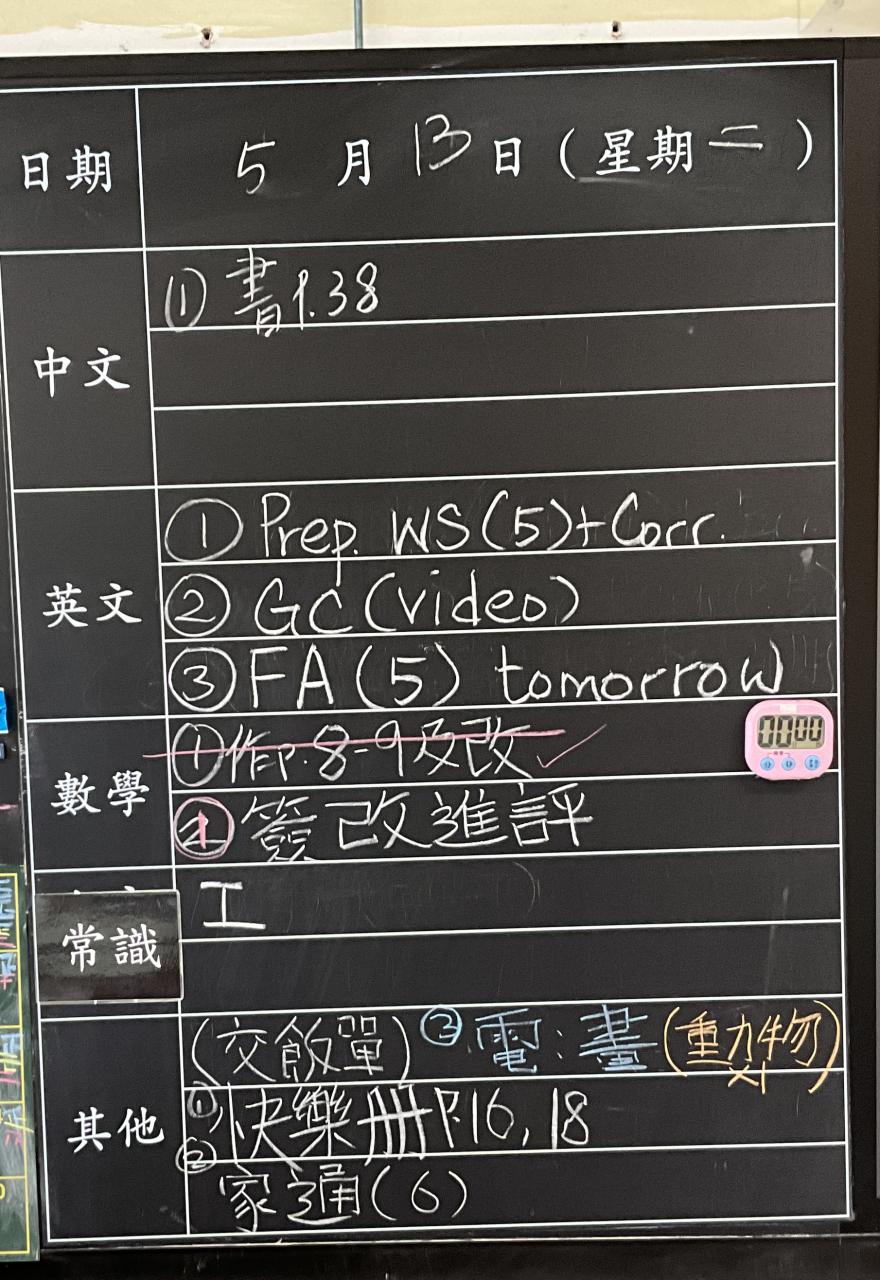 日期 5 月 13 日 (星期二)
中文
① 書P.38
英文
① Prep. WS(5)+Corr.
② GC (video)
③ FA (5) tomorrow
數學
① 作P.8-9及改 ✓
① 簽改進評
常識
工
其他
(交飯單) ② 電:畫(動物)x1
① 快樂册P.16, 18
② 家通(6)
00:00